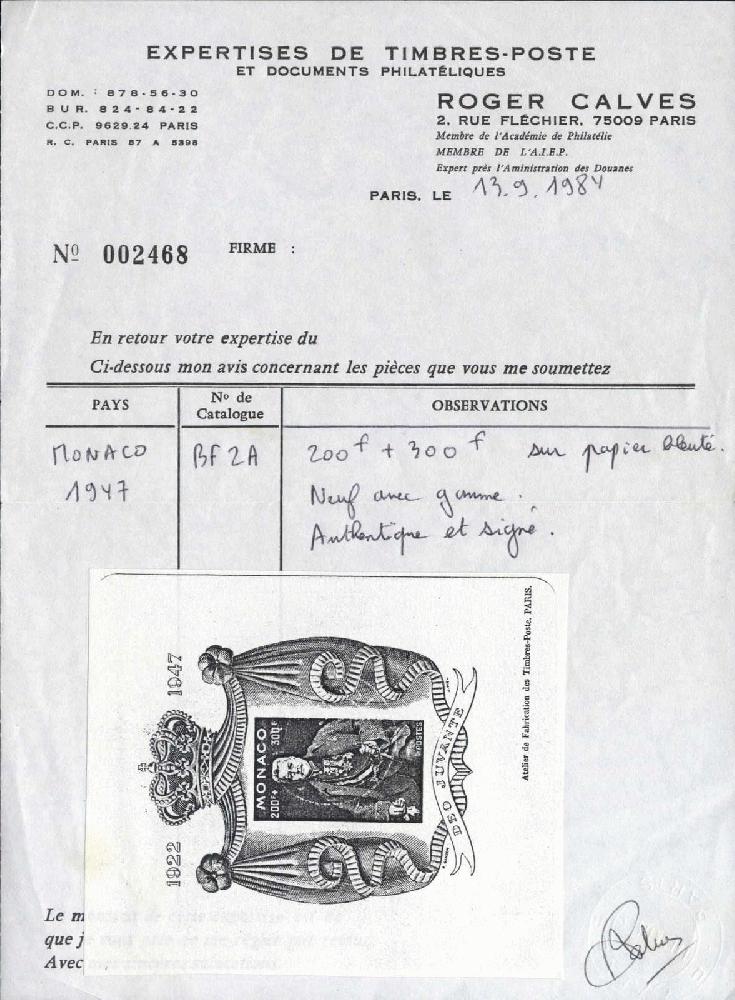 EXPERTISES DE TIMBRES-POSTE
ET DOCUMENTS PHILATÉLIQUES
DOM. : 878-56-30
BUR. 824-84-22
C.C.P. 9629.24 PARIS
R. C. PARIS 57 A 5398
ROGER CALVES
2, RUE FLÉCHIER, 75009 PARIS
Membre de l'Académie de Philatélie
MEMBRE DE L'A.I.E.P.
Expert près l'Aministration des Douanes
PARIS, LE 13.9.1984
Nº 002468 FIRME :
En retour votre expertise du
Ci-dessous mon avis concernant les pièces que vous me soumettez
PAYS
Nº de
Catalogue
OBSERVATIONS
MONACO
1947
BF 2A
200f + 300f sur papier bleuté.
Neuf avec gomme.
Authentique et signé.
1922 1947
MONACO
200F+ 300F
POSTES
DEO JUVANTE
Atelier de Fabrication des Timbres-Poste, PARIS.
Le m
que j
Avec